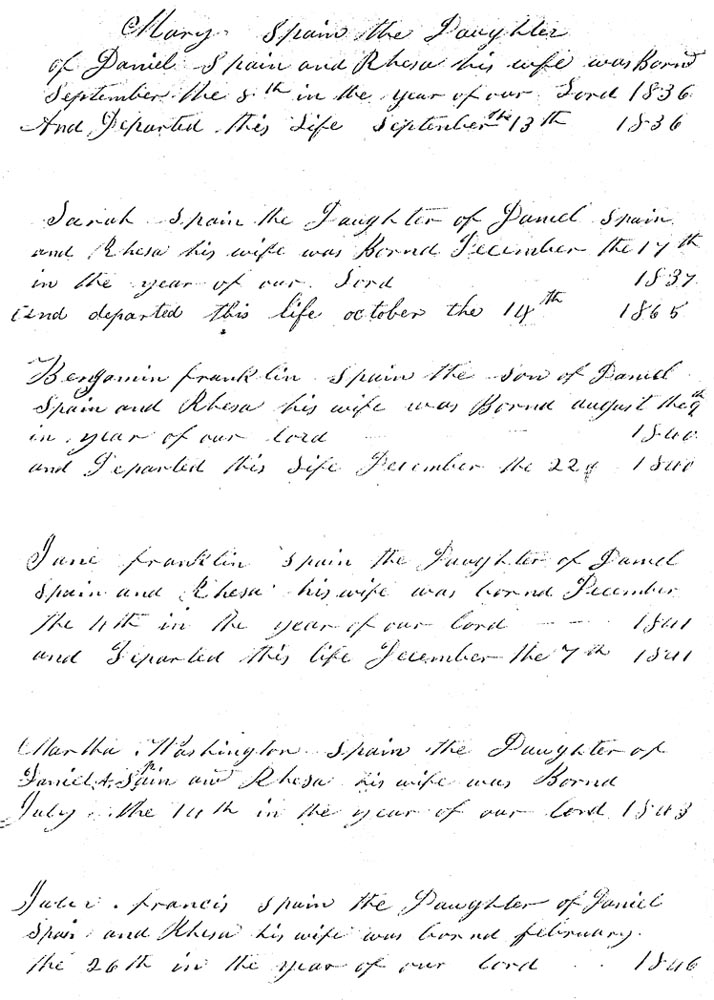 Mary Spain the Daughter
of Daniel Spain and Rhesa his wife was Bornd
September the 8th in the year of our Lord 1836
And Departed this Life September the 13th 1836
Sarah Spain the Daughter of Daniel Spain
and Rhesa his wife was Bornd December the 17th
in the year of our Lord 1837
and departed this life october the 14th 1865
Benjamin franklin Spain the son of Daniel
Spain and Rhesa his wife was Bornd august the 9th
in year of our lord 1840
and Departed this Life December the 22d 1840
Jane franklin Spain the Daughter of Daniel
Spain and Rhesa his wife was bornd December
the 4th in the year of our lord 1841
and Departed this life December the 7th 1841
Martha Washington Spain the Daughter of
Daniel Spain and Rhesa his wife was Bornd
July the 14th in the year of our lord 1843
francis Spain the Daughter of Daniel
Spain and Rhesa his wife was bornd february
the 26th in the year of our lord 1846